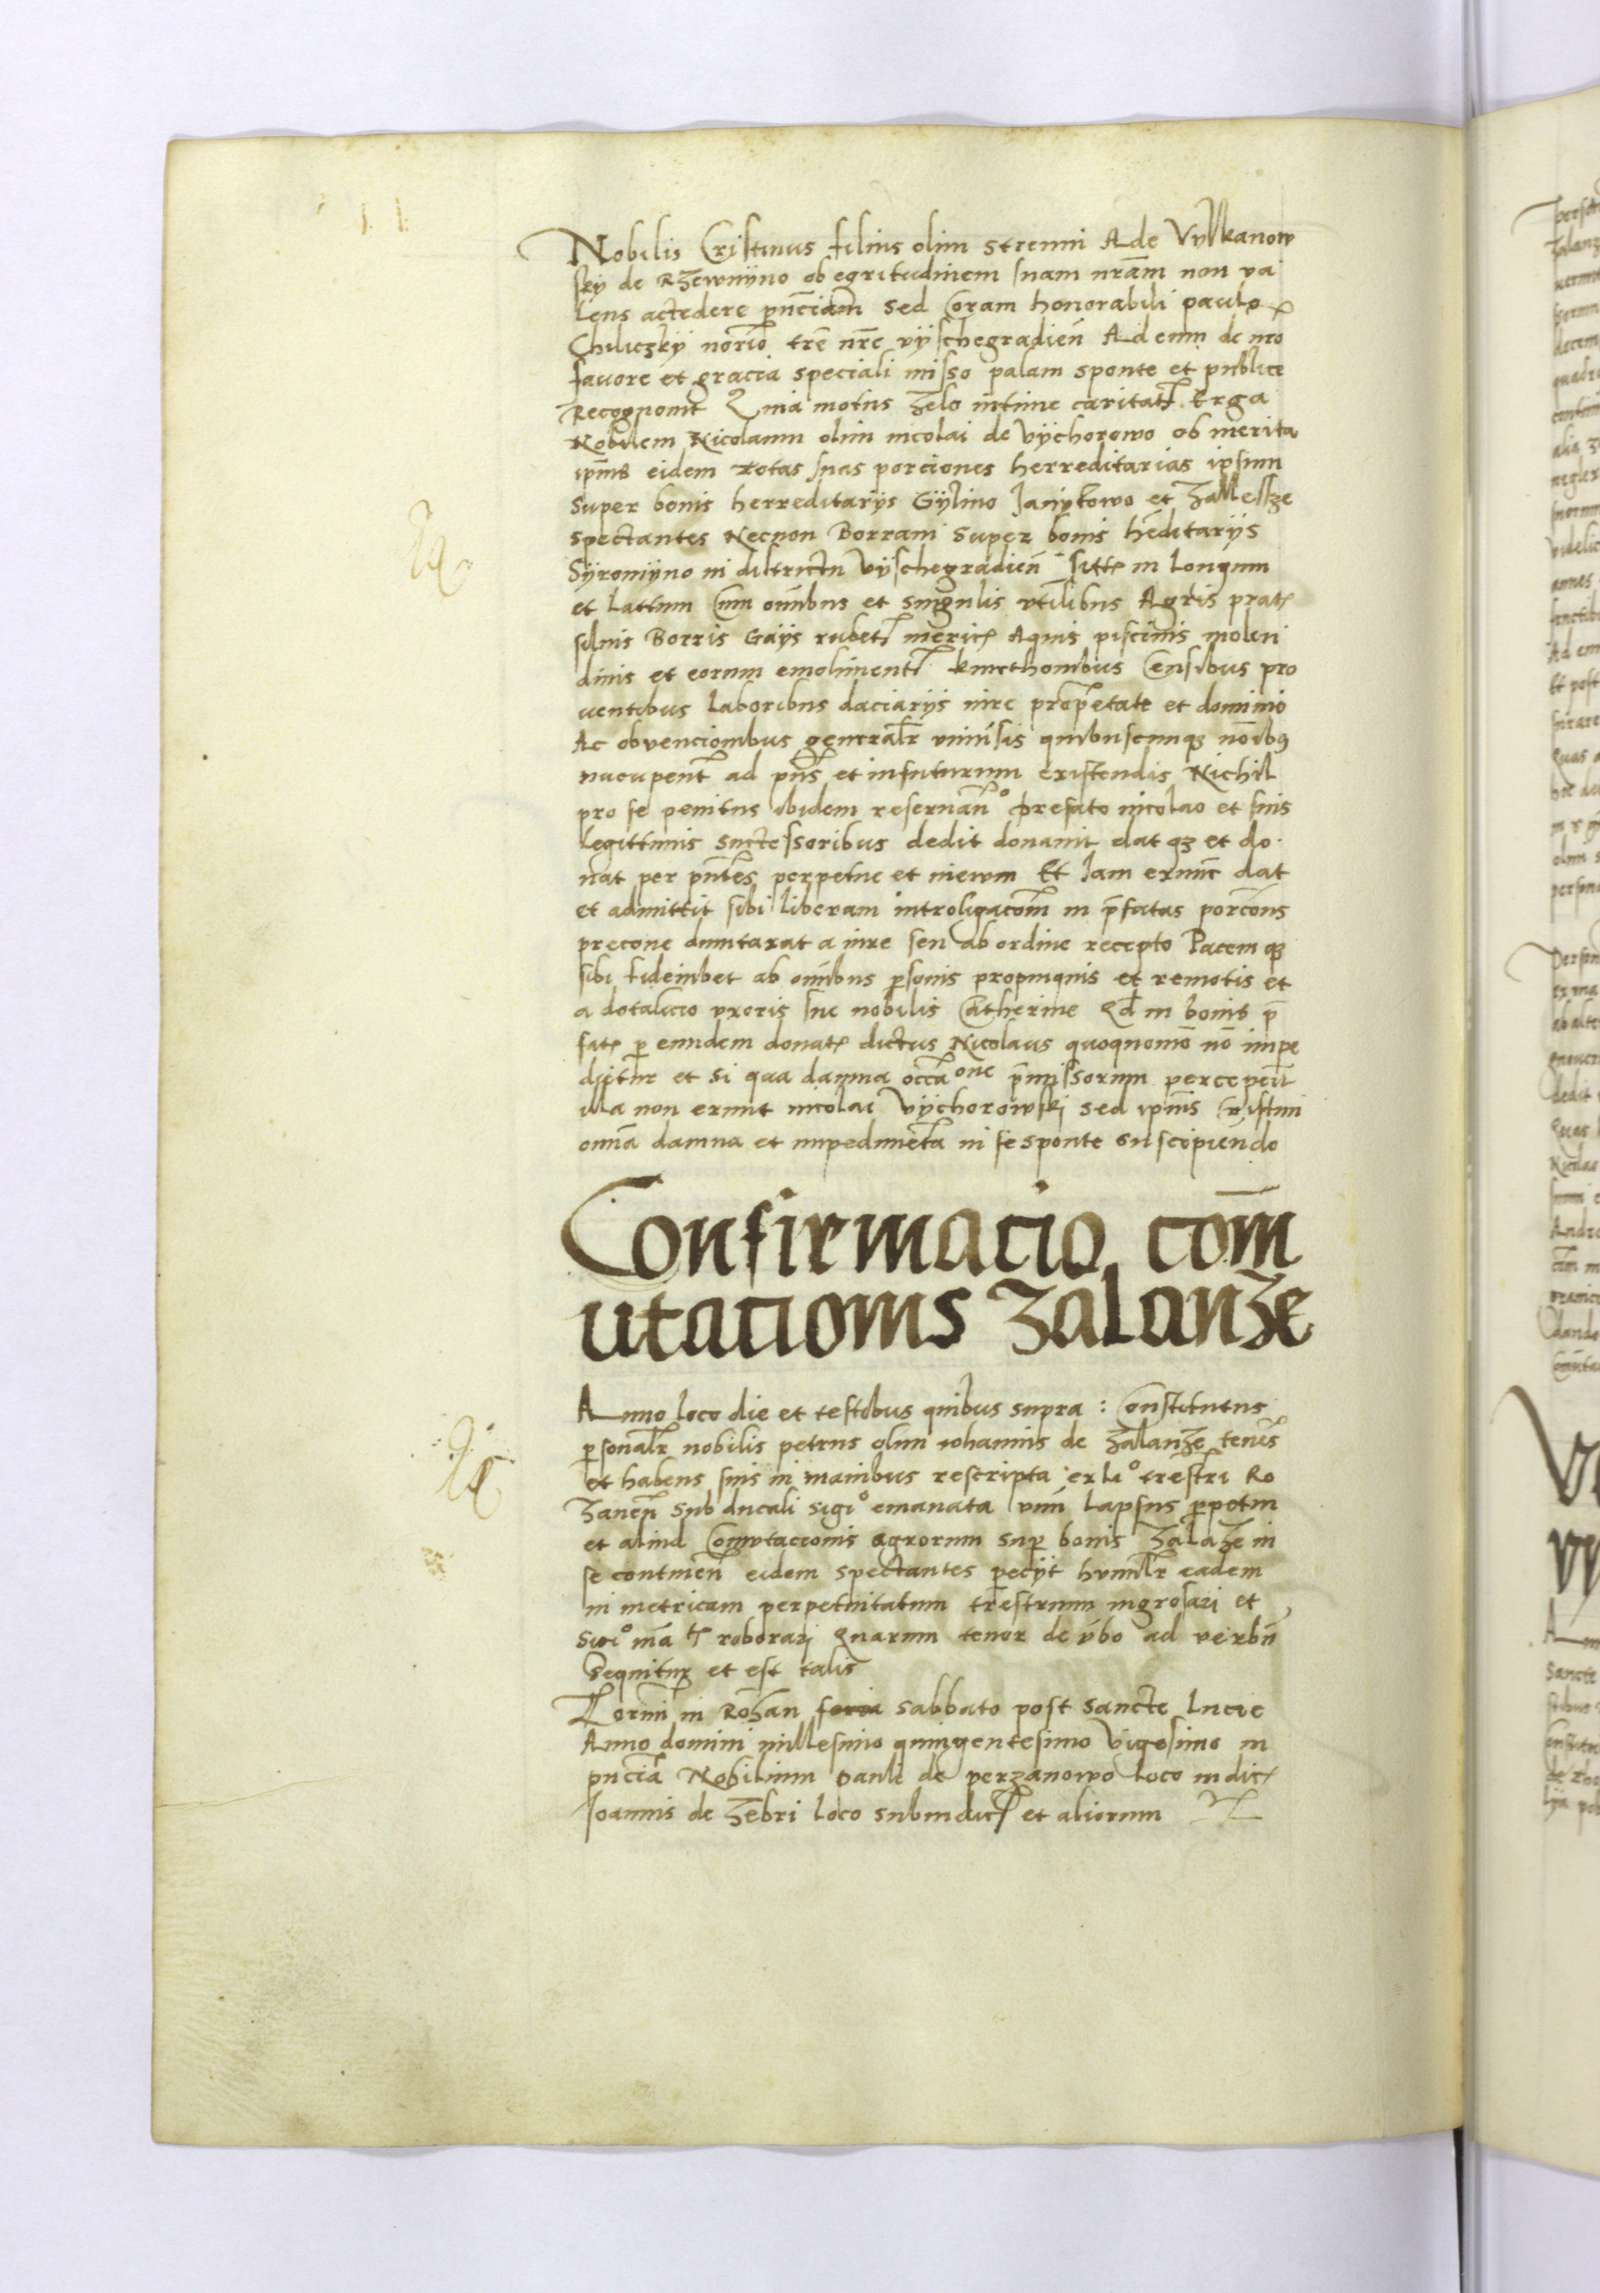 Nobilis Cristinus filius olim strenui Ade Vylkanow
sky de Rzewnyno ob egritudinem suam nram non va
lens accedere pnciam sed Coram honorabili paulo
Chiliczky norio tre nre vyschegradien Ad eum de nro
favore et gracia speciali misso palam sponte et publice
Recognovit Quia motus zelo intime caritat Erga
Nobilem Nicolaum olim nicolai de Vychorowo ob merita
ipius eidem totas suas porciones herreditarias ipsum
Super bonis herreditarys Gylino Janykowo et Zallesze
spectantes Necnon Borram Super bonis hereditarys
Syromyno in districtu Vyschegradien sitt in longum
et latum Cum omibus et singulis vtilibus Agris prat
siluis Borris Gays rubet meric Aquis piscinis molen
dinis et eorum emoliment kmethonibus Censibus pro
uentibus laboribus daciarys iure proprietate et dominio
Ac obvencionibus generalr vniusis quibuscumqz noibus
nucupent ad pns et infuturum existendis Nichil
pro se penitus ibidem reseruan° prefato nicolao et suis
legittimis successoribus dedit donauit dat qz et do
nat per pntes perpetue et inewm Et Iam exnunc dat
et admittit sibi liberam introligacom in pfatas porcons
precone dumtaxat a iure seu ab ordine recepto Pacem qz
sibi fideiubet ab omibus psonis propinquis et remotis et
a dotalicio vxoris sue nobilis Catherine Qd in bonis p
fat p eundem donat dictus Nicolaus quoquomo no impe
dietur et si qua damna occaone pmissorum perceperit
illa non erunt nicolai Vychorowski sed ipius Cristini
omia damna et impedimeta in se sponte suscipiendo
Confirmacio com
utacionis Zalanze
Anno loco die et testibus quibus supra : Constitutus
psonalr nobilis petrus olim iohannis de Zalanze tenes
et habens suis in manibus rescripta ex li° trestri Ro
zanen sub ducali sigi° emanata vnu lapsus ppetui
et aliud Comutacionis agrorum sup bonis Zalaze in
se continen eidem spectantes pecyt humilr eadem
in metricam perpetuitatum trestrium ingrosari et
sigi° mia roborari Quarum tenor de vbo ad verbu
sequitur et est talis
Termi in Rozan feria sabbato post Sancte lucie
Anno domini millesimo quingentesimo Vigesimo in
pncia Nobilium Pauli de perzanowo loco iudic
Joannis de Zebri loco subiudic et aliorum